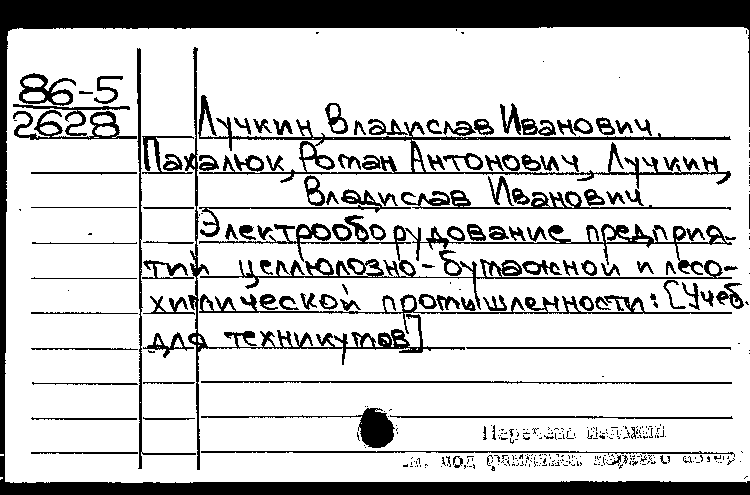 86-5
2628
Лучкин, Владислав Иванович.
Пахалюк, Роман Антонович, Лучкин,
Владислав Иванович.
Электрооборудование предприя-
тий целлюлозно-бумажной и лесо-
химической промышленности: [Учеб.
для техникумов].
Перечень изданий
см. под фамилией первого автора